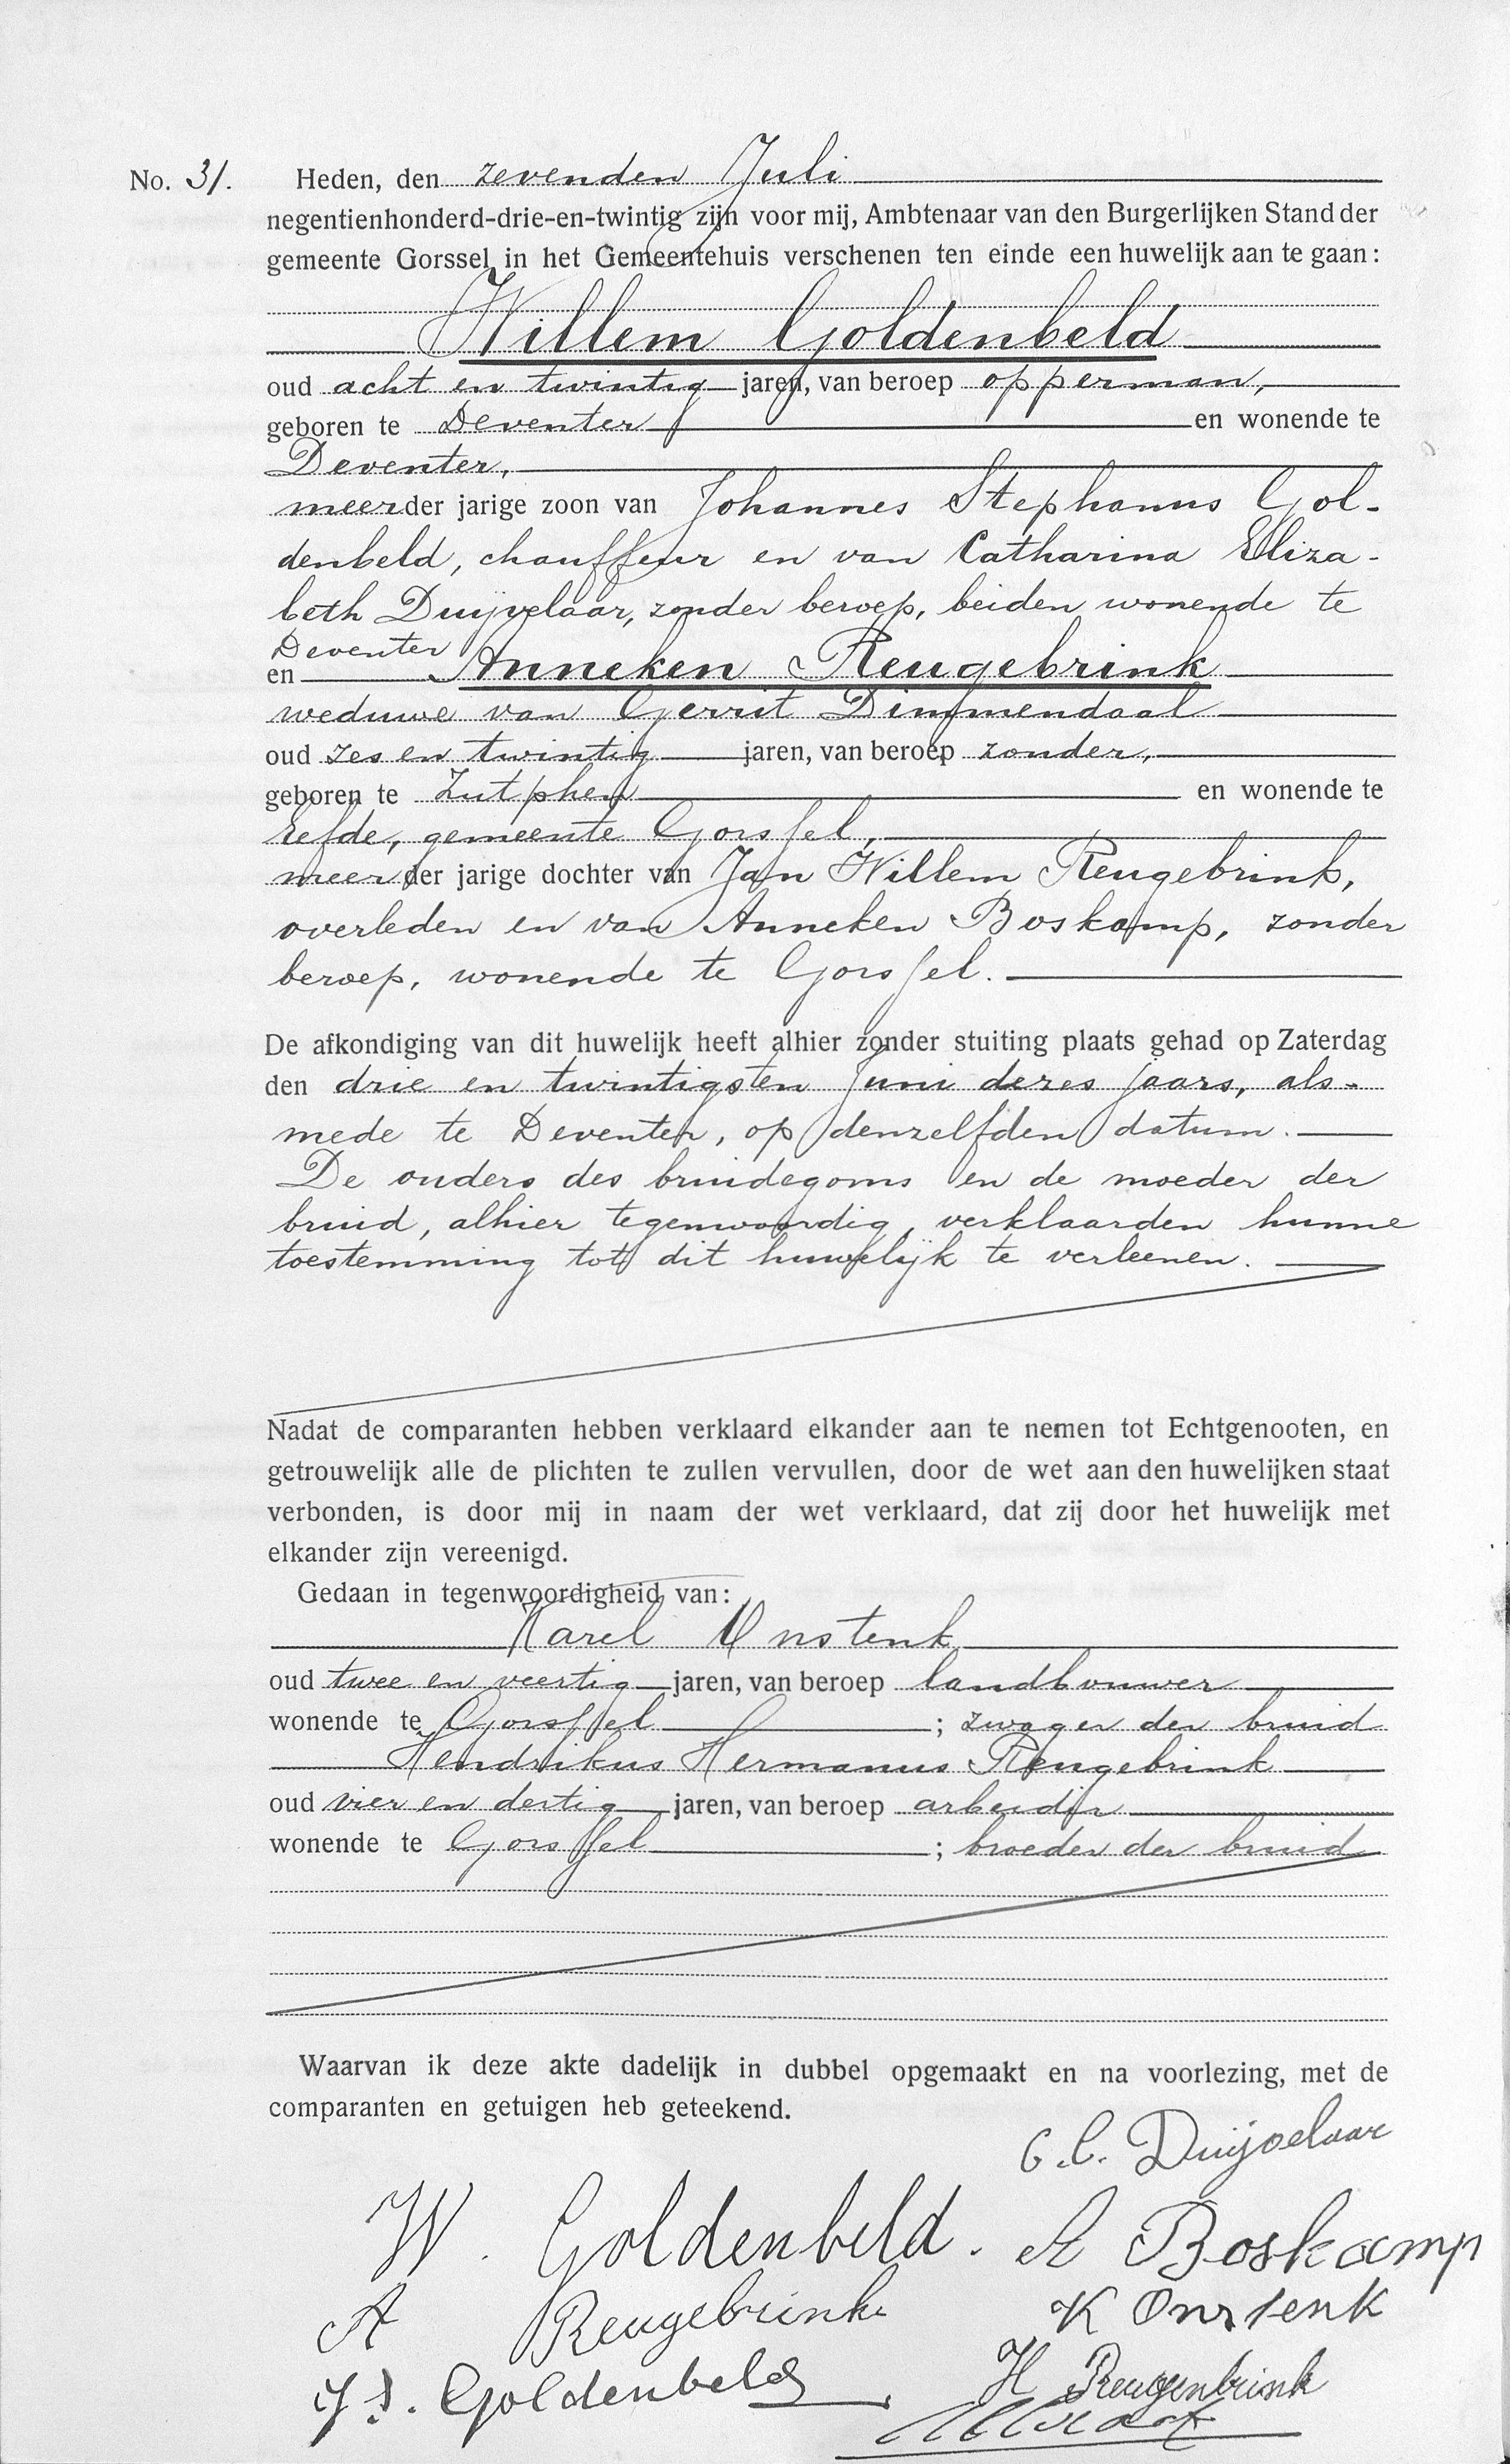 No. 31. Heden, den zevenden Juli
negentienhonderd-drie-en-twintig zijn voor mij, Ambtenaar van den Burgerlijken Stand der
gemeente Gorssel in het Gemeentehuis verschenen ten einde een huwelijk aan te gaan:
Willem Goldenbeld
oud acht en twintig jaren, van beroep opperman,
geboren te Deventer en wonende te
Deventer,
meerder jarige zoon van Johannes Stephanus Gol-
denbeld, chauffeur en van Catharina Eliza-
beth Duijvelaar, zonder beroep, beiden wonende te
Deventer
en Anneken Reugebrink
weduwe van Gerrit Dimmendaal
oud zes en twintig jaren, van beroep zonder,
geboren te Zutphen en wonende te
Eefde, gemeente Gorssel,
meerder jarige dochter van Jan Willem Reugebrink,
overleden en van Anneken Boskamp, zonder
beroep, wonende te Gorssel.
De afkondiging van dit huwelijk heeft alhier zonder stuiting plaats gehad op Zaterdag
den drie en twintigsten Juni dezes jaars, als-
mede te Deventer, op denzelfden datum.
De ouders des bruidegoms en de moeder der
bruid, alhier tegenwoordig, verklaarden hunne
toestemming tot dit huwelijk te verleenen.
Nadat de comparanten hebben verklaard elkander aan te nemen tot Echtgenooten, en
getrouwelijk alle de plichten te zullen vervullen, door de wet aan den huwelijken staat
verbonden, is door mij in naam der wet verklaard, dat zij door het huwelijk met
elkander zijn vereenigd.
Gedaan in tegenwoordigheid van:
Karel Onstenk
oud twee en veertig jaren, van beroep landbouwer
wonende te Gorssel ; zwager der bruid
Hendrikus Hermanus Reugebrink
oud vier en dertig jaren, van beroep arbeider
wonende te Gorssel ; broeder der bruid
Waarvan ik deze akte dadelijk in dubbel opgemaakt en na voorlezing, met de
comparanten en getuigen heb geteekend.
C. E. Duijvelaar
W. Goldenbeld. A Boskamp
A Reugebrink K Onstenk
J S. Goldenbeld H Reugenbrink